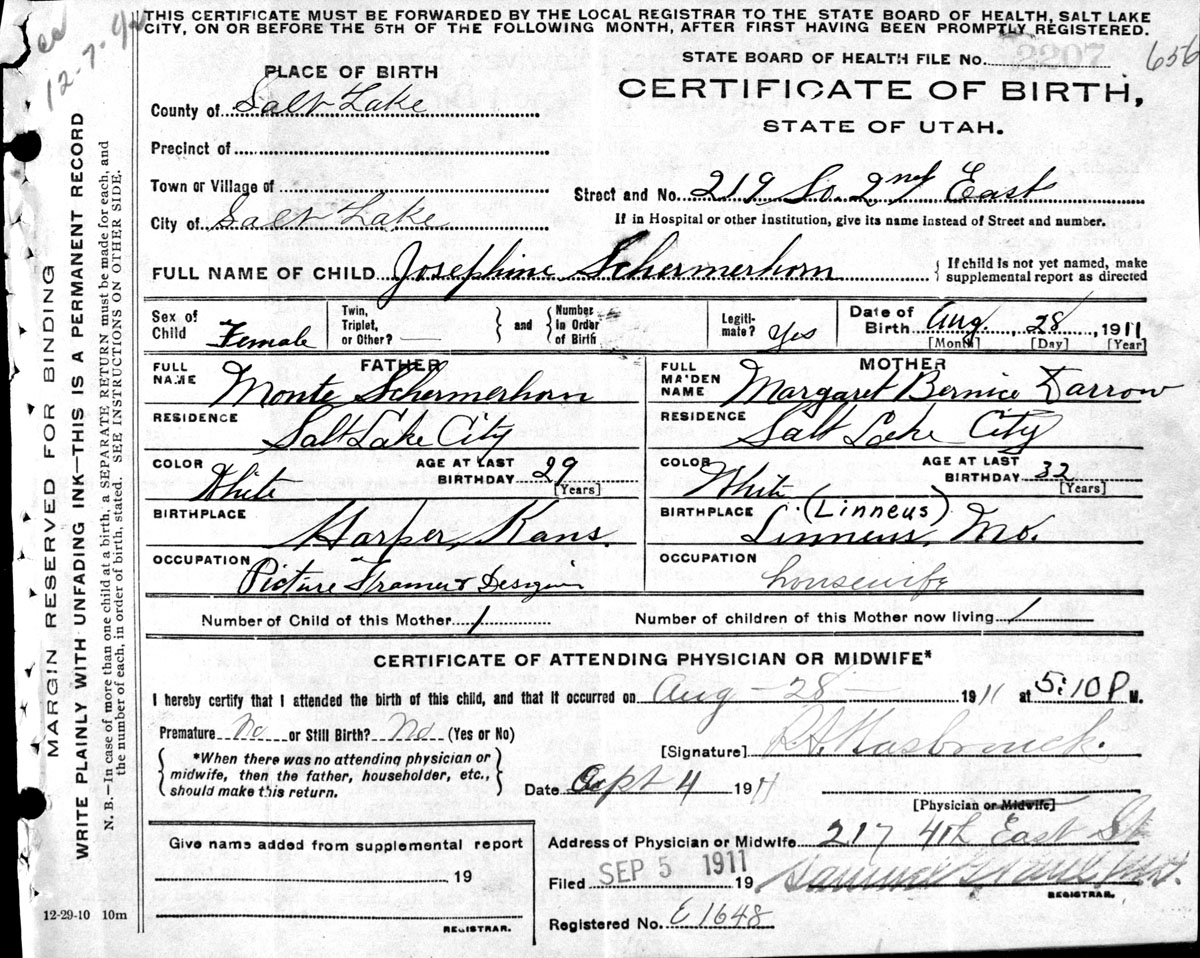 THIS CERTIFICATE MUST BE FORWARDED BY THE LOCAL REGISTRAR TO THE STATE BOARD OF HEALTH, SALT LAKE
CITY, ON OR BEFORE THE 5TH OF THE FOLLOWING MONTH, AFTER FIRST HAVING BEEN PROMPTLY REGISTERED.
12-7-
STATE BOARD OF HEALTH FILE No. 2207
656
PLACE OF BIRTH
CERTIFICATE OF BIRTH,
STATE OF UTAH.
County of Salt Lake
Precinct of
Town or Village of
Street and No. 219 So. 2nd East
City of Salt Lake
If in Hospital or other Institution, give its name instead of Street and number.
FULL NAME OF CHILD Josephine Schermerhorn
{ If child is not yet named, make
supplemental report as directed
Sex of Child Female
Twin, Triplet, or Other? —
} and { Number in Order of Birth
Legitimate? Yes
Date of Birth Aug. , 28 , 1911
[Month] [Day] [Year]
FATHER
FULL NAME Monte Schermerhorn
RESIDENCE Salt Lake City
COLOR White
AGE AT LAST BIRTHDAY 29 [Years]
BIRTHPLACE Harper, Kans.
OCCUPATION Picture Framer & Designer
MOTHER
FULL MAIDEN NAME Margaret Bernice Darrow
RESIDENCE Salt Lake City
COLOR White
AGE AT LAST BIRTHDAY 32 [Years]
BIRTHPLACE (Linneus) Linneus, Mo.
OCCUPATION housewife
Number of Child of this Mother 1
Number of children of this Mother now living 1
CERTIFICATE OF ATTENDING PHYSICIAN OR MIDWIFE*
I hereby certify that I attended the birth of this child, and that it occurred on Aug - 28 - 1911 at 5:10 P M.
Premature No or Still Birth? No (Yes or No)
{ *When there was no attending physician or
midwife, then the father, householder, etc.,
should make this return. }
[Signature] Hasbrouck.
Date Sept 4 1911
[Physician or Midwife]
Address of Physician or Midwife 217 4th East St
Filed SEP 5 1911 19
REGISTRAR.
Registered No. C1648
Give name added from supplemental report
19
REGISTRAR.
12-29-10 10m
MARGIN RESERVED FOR BINDING
WRITE PLAINLY WITH UNFADING INK—THIS IS A PERMANENT RECORD
N. B.—In case of more than one child at a birth, a SEPARATE RETURN must be made for each, and
the number of each, in order of birth, stated. SEE INSTRUCTIONS ON OTHER SIDE.